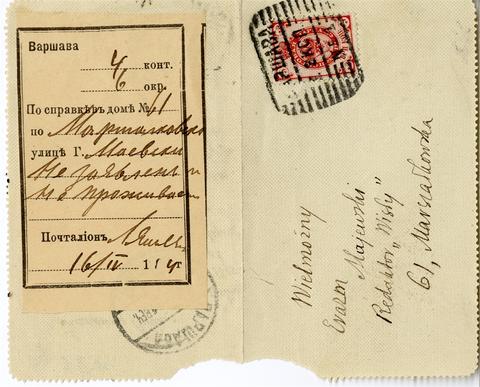 Варшава
4 конт.
6 окр.
По справкѣ въ домѣ № 41
по Маршалковск
улицѣ Г. Маевски
не заявленъ и
не проживает
Почталіонъ
16/IV 1914 г
ВАРШАВА
Wielmożny
Erazm Majewski
Redaktor „Wisły”
61, Marszałkowska